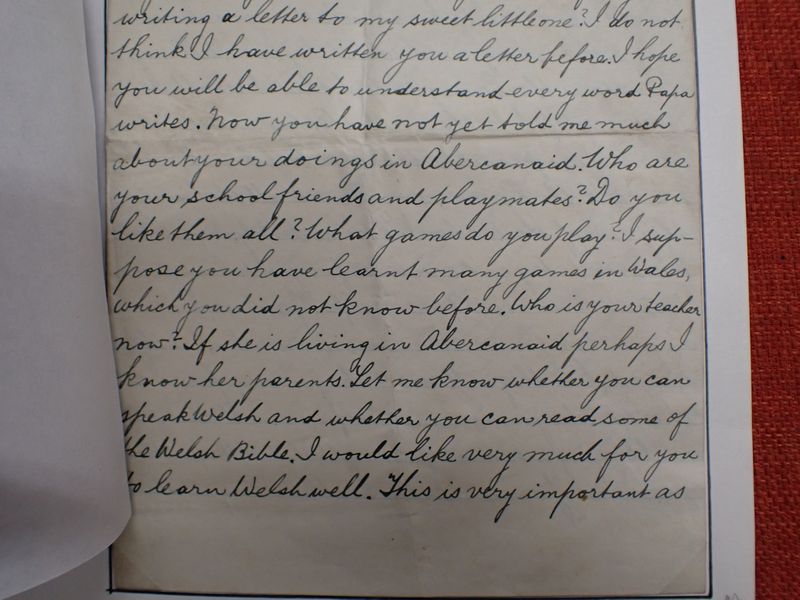 writing a letter to my sweet little one? I do not
think I have written you a letter before. I hope
you will be able to understand every word Papa
writes. Now you have not yet told me much
about your doings in Abercanaid. Who are
your school friends and playmates? Do you
like them all? What games do you play? I sup-
pose you have learnt many games in Wales,
which you did not know before. Who is your teacher
now? If she is living in Abercanaid perhaps I
know her parents. Let me know whether you can
speak Welsh and whether you can read some of
the Welsh Bible. I would like very much for you
to learn Welsh well. This is very important as